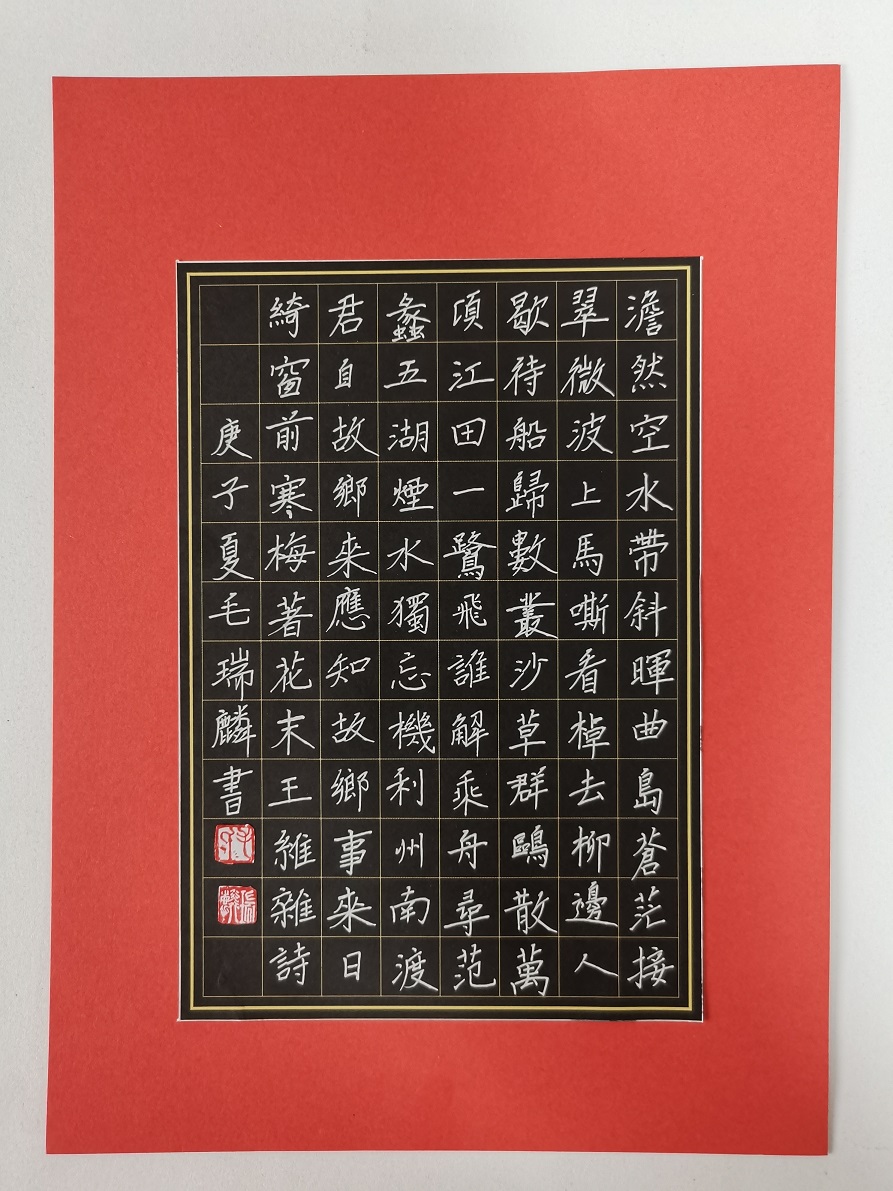 澹然空水帶斜暉曲島蒼茫接
翠微波上馬嘶看棹去柳邊人
歇待船歸數叢沙草群鷗散萬
頃江田一鷺飛誰解乘舟尋范
蠡五湖煙水獨忘機利州南渡
君自故鄉来應知故鄉事来日
綺窗前寒梅著花末王維雜詩
庚子夏毛瑞麟書